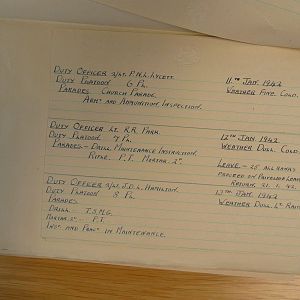 Duty Officer 2/Lt. P.N.L. Lycett. 11th Jan. 1942
Duty Platoon 6 Pl. Weather Fine. Cold.
Parades Church Parade.
Arms and Ammunition Inspection.
Duty Officer Lt. R.R. Park. 12th Jan 1942
Duty Platoon 7 Pl. Weather Dull. Cold
Parades - Drill. Maintenance Instruction. Leave - 25 all ranks
Rifle. P.T. Mortar. 2". proceed on Privilege Leave
Return. 21.1.42.
Duty Officer 2/Lt. J.D.L. Hamilton. 13th Jan. 1942
Duty Platoon 8 Pl. Weather Dull. Lt. Rain
Parades
Drill. T.S.M.G.
Mortar. 2" P.T.
Inst. and Prac. in Maintenance.